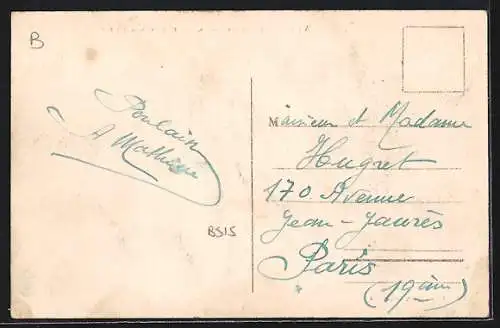 B
Poulain
A Mathieu
B515
Monsieur et Madame
Hugret
170 Avenue
Jean-Jaurès
Paris
(19ème)